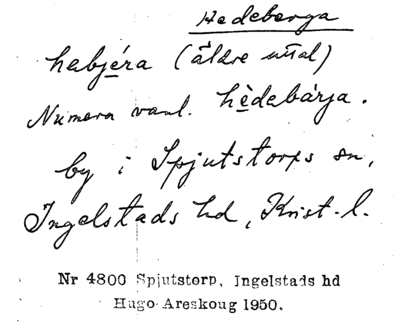 Hedeberga
habjéra (äldre uttal)
Numera vanl. hèdebárja.
by i Spjutstorps sn,
Ingelstads hd, Krist. l.
Nr 4800 Spjutstorp, Ingelstads hd
Hugo Areskoug 1950.